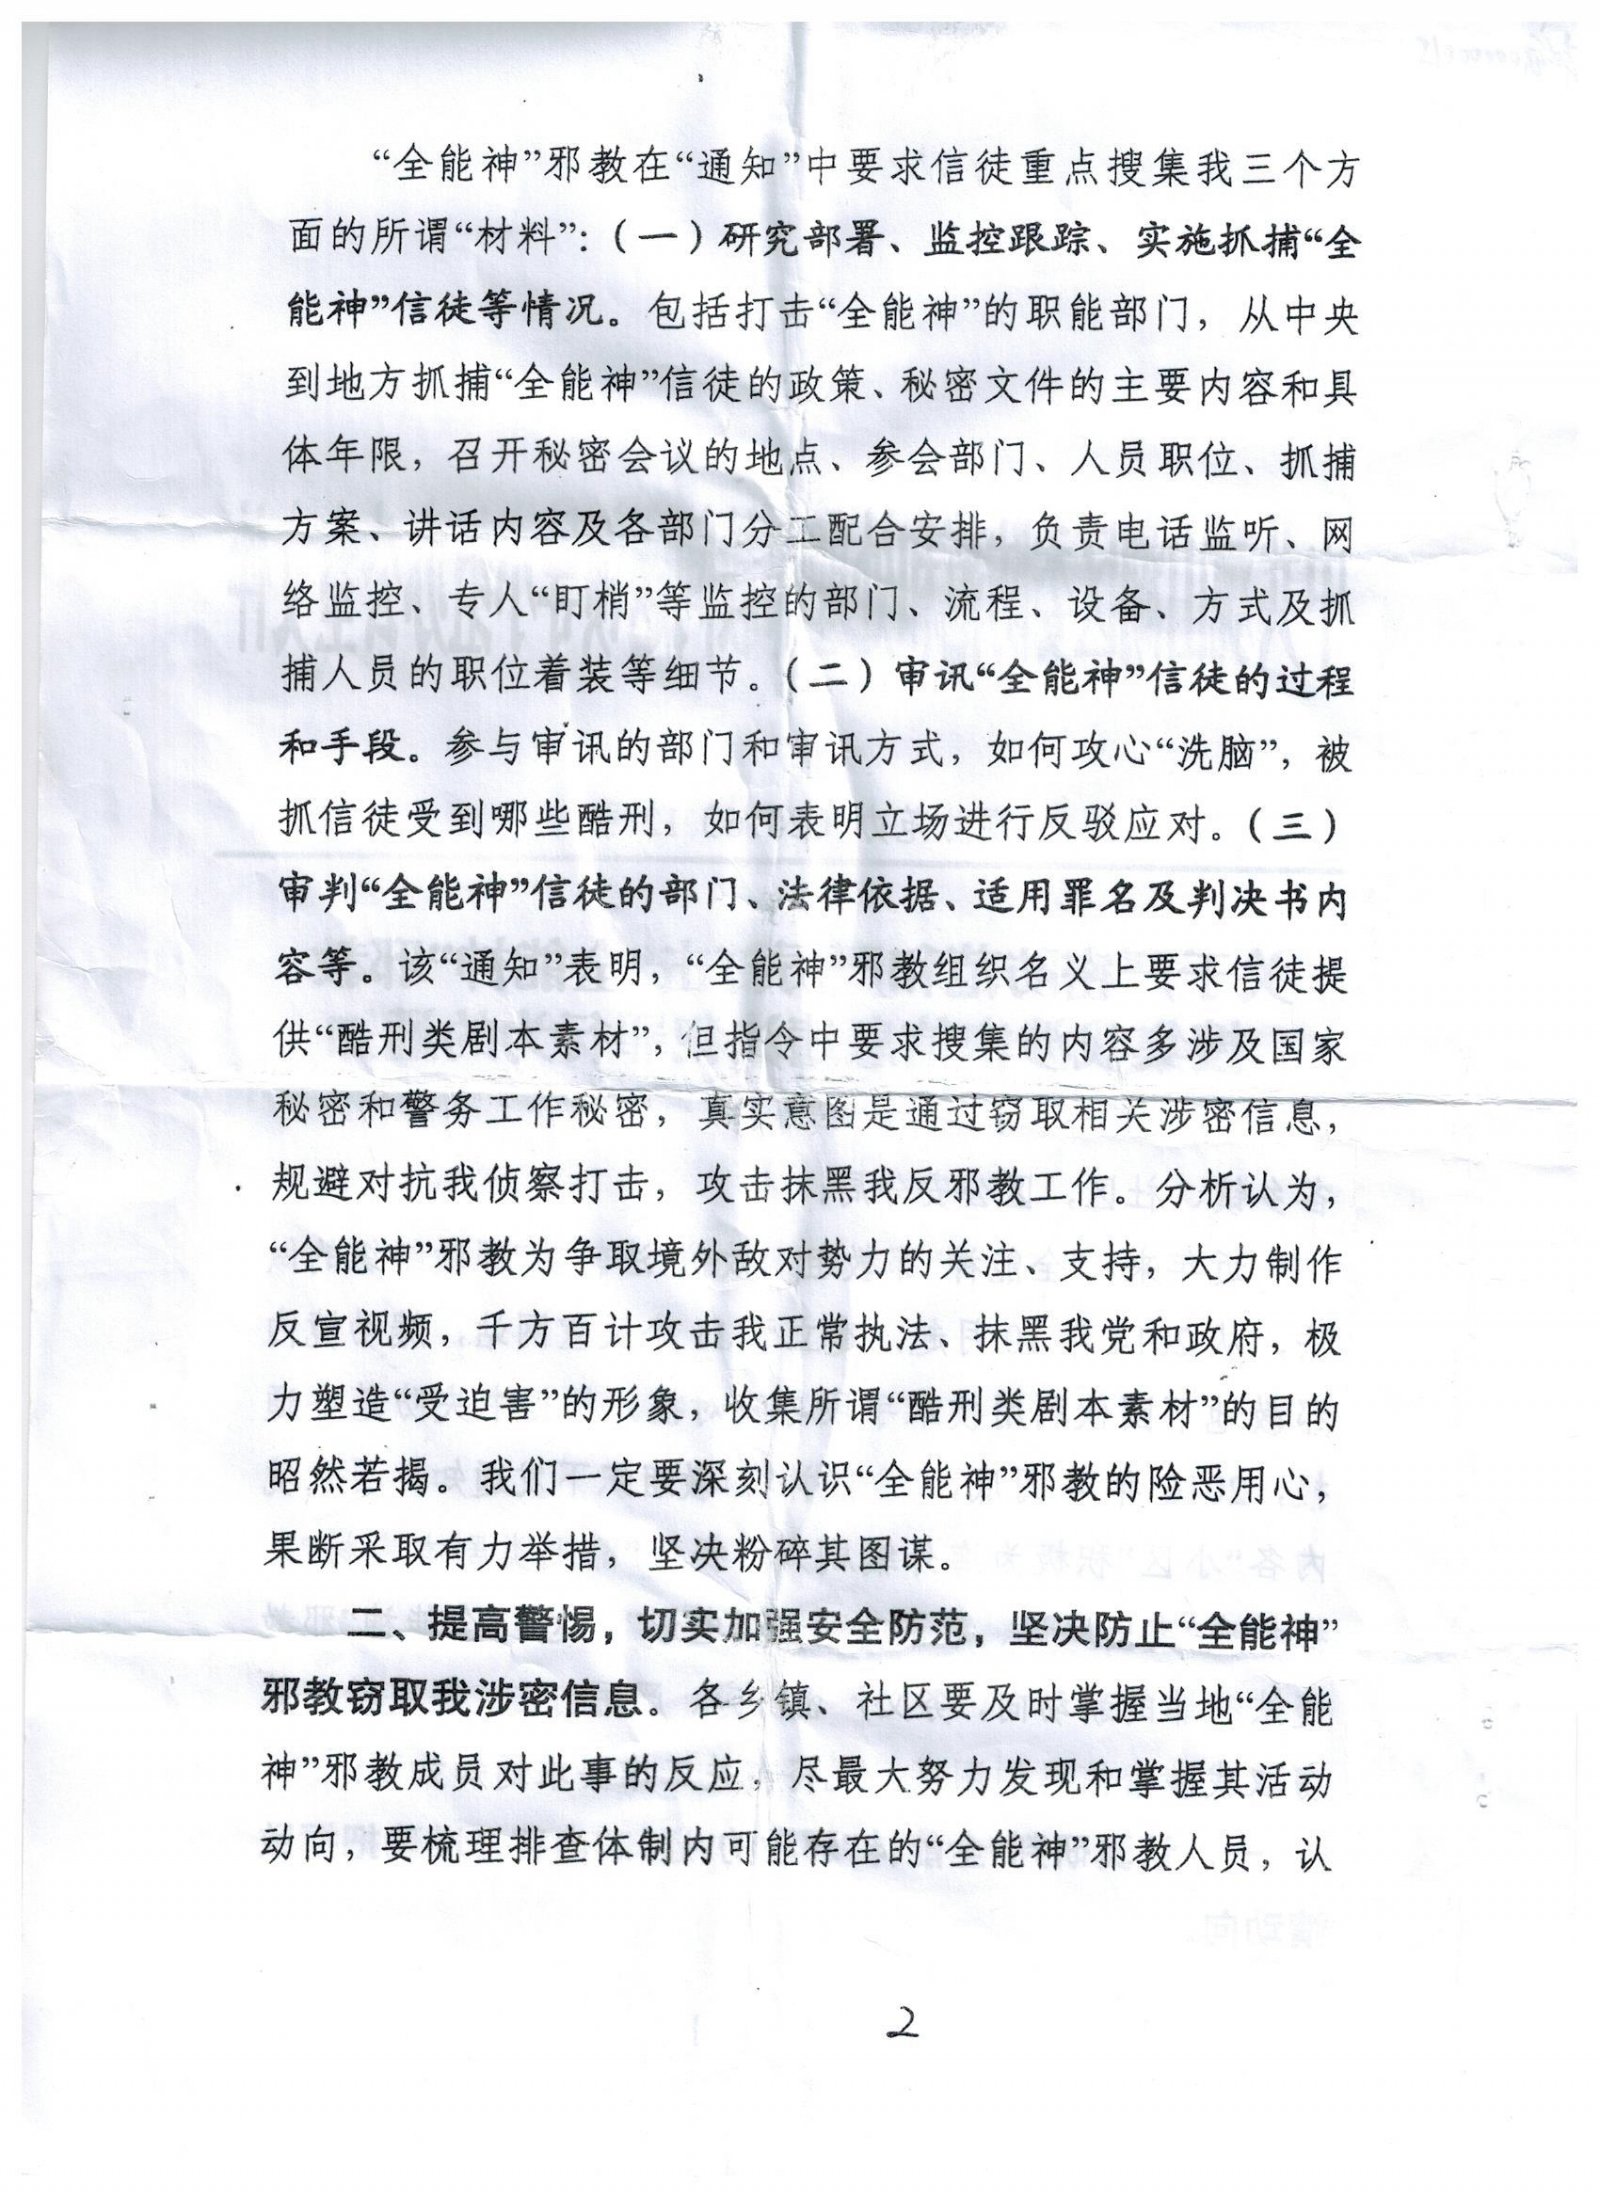 “全能神”邪教在“通知”中要求信徒重点搜集我三个方
面的所谓“材料”：（一）研究部署、监控跟踪、实施抓捕“全
能神”信徒等情况。包括打击“全能神”的职能部门，从中央
到地方抓捕“全能神”信徒的政策、秘密文件的主要内容和具
体年限，召开秘密会议的地点、参会部门、人员职位、抓捕
方案、讲话内容及各部门分工配合安排，负责电话监听、网
络监控、专人“盯梢”等监控的部门、流程、设备、方式及抓
捕人员的职位着装等细节。（二）审讯“全能神”信徒的过程
和手段。参与审讯的部门和审讯方式，如何攻心“洗脑”，被
抓信徒受到哪些酷刑，如何表明立场进行反驳应对。（三）
审判“全能神”信徒的部门、法律依据、适用罪名及判决书内
容等。该“通知”表明，“全能神”邪教组织名义上要求信徒提
供“酷刑类剧本素材”，但指令中要求搜集的内容多涉及国家
秘密和警务工作秘密，真实意图是通过窃取相关涉密信息，
规避对抗我侦察打击，攻击抹黑我反邪教工作。分析认为，
“全能神”邪教为争取境外敌对势力的关注、支持，大力制作
反宣视频，千方百计攻击我正常执法、抹黑我党和政府，极
力塑造“受迫害”的形象，收集所谓“酷刑类剧本素材”的目的
昭然若揭。我们一定要深刻认识“全能神”邪教的险恶用心，
果断采取有力举措，坚决粉碎其图谋。
二、提高警惕，切实加强安全防范，坚决防止“全能神”
邪教窃取我涉密信息。各乡镇、社区要及时掌握当地“全能
神”邪教成员对此事的反应，尽最大努力发现和掌握其活动
动向，要梳理排查体制内可能存在的“全能神”邪教人员，认
2